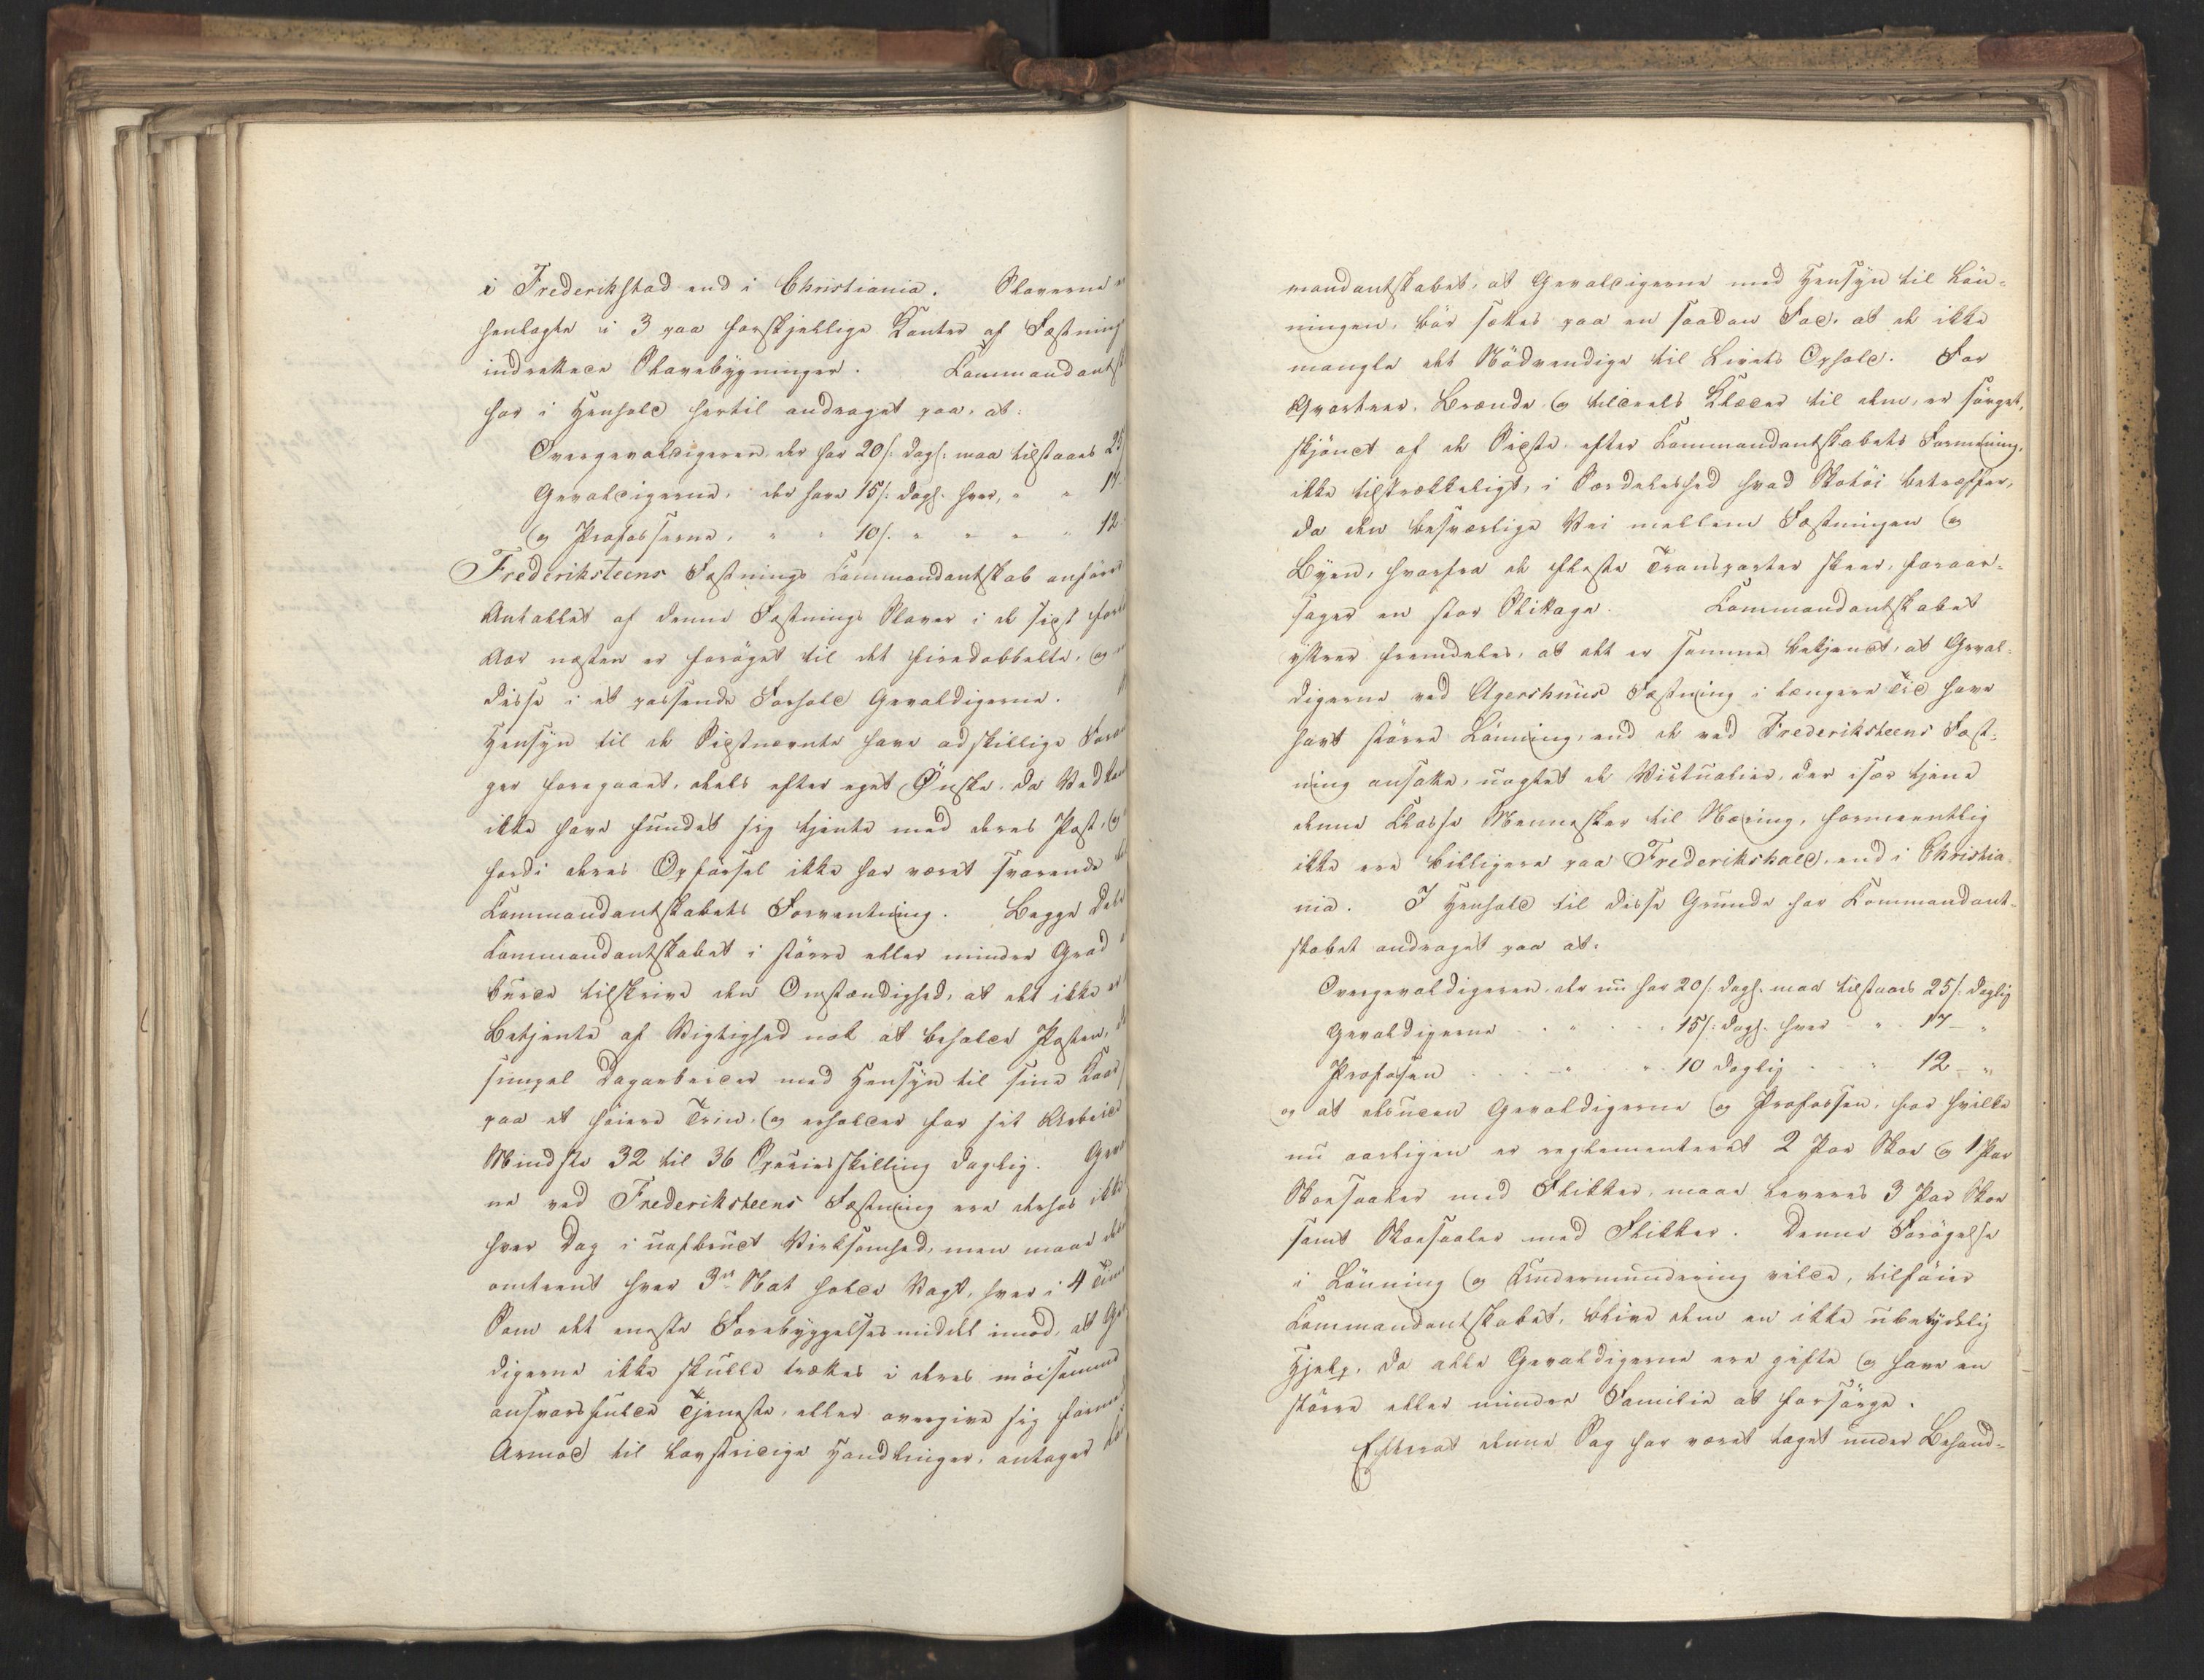 i Frederikstad end i Christiania. Slaverne
henlagte i 3 paa forskjellige Kanter af Fæstning
indrettede Slavebygninger. Commandants
har i Henhold hertil andraget paa, at:
Overgevaldigeren, der har 20 s. dagl. maa tilstaaes 25
Gevaldigerne, der have 15 s. dagl. hver, " " 17
og Profosserne, " " 10 s. " " " " 12
Frederiksteens Fæstnings Commandantskab anfører
Antallet af denne Fæstnings Slaver i de sidst
Aar næsten er forøget til det firedobbelte, og
disse i et passende Forhold Gevaldigerne.
Hensyn til de Sidstnævnte have adskillige
ger foregaaet, deels efter eget Ønske, da
ikke have fundet sig tjente med deres Post, og
fordi deres Opførsel ikke har været svarende
Commandantskabets Forventning. Begge Dele
Commandantskabet i større eller mindre Grad
burde tilskrive den Omstændighed, at det ikke er
Betjente af Vigtighed nok at beholde Posten,
simpel Dagarbeider med Hensyn til sine Kaar
paa et høiere Trin, og erholder for sit Arbeide
Mindste 32 til 36 Speciesskilling daglig.
ne ved Frederiksteens Fæstning ere derhos ikke
hver Dag i uafbrudt Virksomhed, men maae
omtrent hver 3die Nat holde Vagt, hver i 4
Som det eneste Forebyggelsesmiddel imod, at Ge
digerne ikke skulle trættes i deres møisomme
ansvarsfulde Tjeneste, eller overgive sig
Armod til lovstridige Handlinger, antager
mandantskabet, at Gevaldigerne med Hensyn til Løn-
ningen, bør sættes paa en saadan Fod, at de ikke
mangle det Nødvendige til Livets Ophold. For
Qvarteer, Brænde og tildeels Klæder til dem, er sørget,
skjøndt af de Sidste efter Commandantskabets Formening,
ikke tilstrækkeligt, i Særdeleshed hvad Skotøi betræffer,
da den besværlige Vei mellem Fæstningen og
Byen, hvorfra de fleste Transporter skeer, foraar-
sager en stor Slitage. Commandantskabet
yttrer fremdeles, at det er samme bekjendt, at Geval-
digerne ved Agershuus Fæstning i længere Tid have
havt større Lønning, end de ved Frederiksteens Fæst-
ning ansatte, uagtet de Victualier, der især tjene
denne Classe Mennesker til Næring, formeentlig
ikke ere billigere paa Frederikshald, end i Christia-
nia. I Henhold til disse Grunde har Commandant-
skabet andraget paa at:
Overgevaldigeren, der nu har 20 s. dagl. maa tilstaaes 25 s. daglig
Gevaldigerne " " 15 s. dagl. hver " 17 "
Profosen " " 10 daglig " 12 "
og at desuden Gevaldigerne og Profossen, for hvilke
nu aarligen er reglementeret 2 Par Skoe og 1 Par
Skoesaaler med Flikker, maae leveres 3 Par Skoe
samt Skoesaaler med Flikker. Denne Forøgelse
i Lønning og Undermundering vilde, tilføier
Commandantskabet, blive dem en ikke ubetydelig
Hjelp, da alle Gevaldigerne ere gifte og have en
større eller mindre Familie at forsørge.
Efterat denne Sag har været taget under Behand-